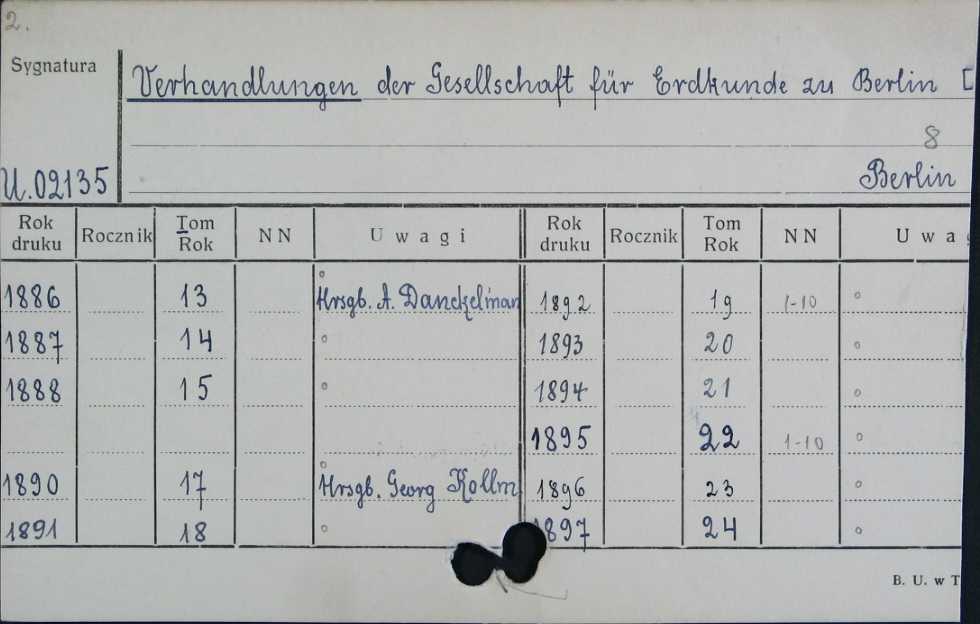 2.
Sygnatura
Verhandlungen der Gesellschaft für Erdkunde zu Berlin [
8
U.02135 Berlin
Rok druku Rocznik Tom Rok NN Uwagi Rok druku Rocznik Tom Rok NN Uwag
1886 13 Hrsgb. A. Danckelman 1892 19 1-10 °
1887 14 ° 1893 20 °
1888 15 ° 1894 21 °
1895 22 1-10 °
1890 17 Hrsgb. Georg Kollm 1896 23 °
1891 18 ° 1897 24 °
B. U. w T